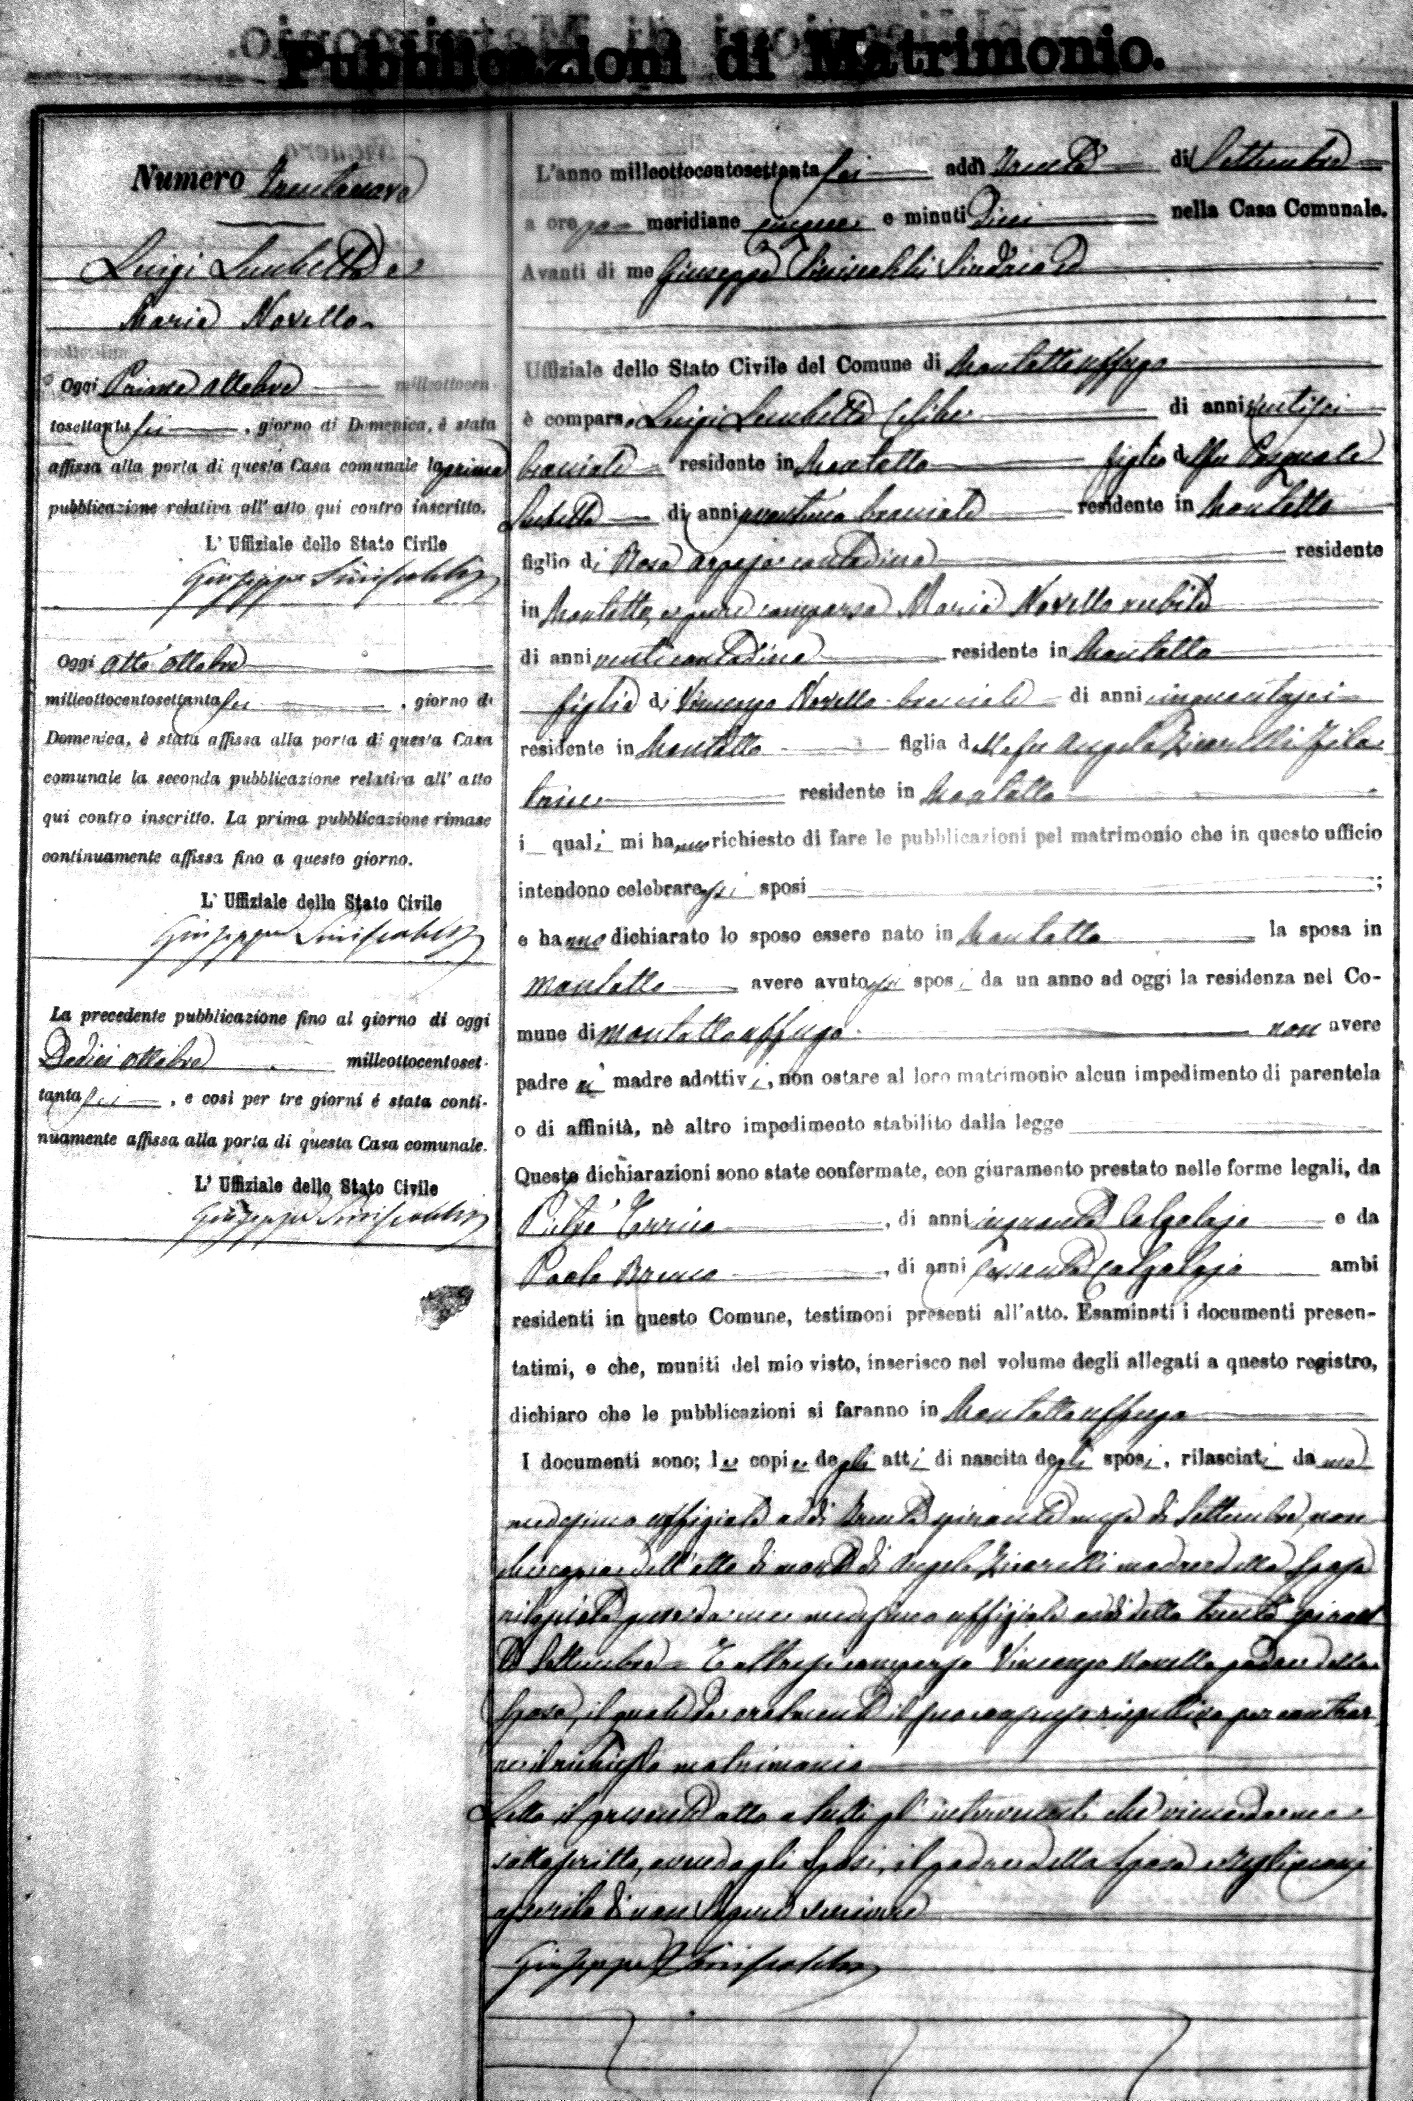 Pubblicazioni di Matrimonio.
Numero trentanove
Luigi Lucchetta e
Maria Novello
Oggi Primo Ottobre milleottocen-
tosettantasei, giorno di Domenica, è stata
affissa alla porta di questa Casa comunale la prima
pubblicazione relativa all'atto qui contro inscritto.
L'Uffiziale dello Stato Civile
Giuseppe Siniscalchi
Oggi otto Ottobre
milleottocentosettantasei, giorno di
Domenica, è stata affissa alla porta di questa Casa
comunale la seconda pubblicazione relativa all'atto
qui contro inscritto. La prima pubblicazione rimase
continuamente affissa fino a questo giorno.
L'Uffiziale dello Stato Civile
Giuseppe Siniscalchi
La precedente pubblicazione fino al giorno di oggi
Dodici Ottobre milleottocentoset-
tantasei, e così per tre giorni é stata conti-
nuamente affissa alla porta di questa Casa comunale.
L'Uffiziale dello Stato Civile
Giuseppe Siniscalchi
L'anno milleottocentosettantasei addì trenta di Settembre
a ore pom meridiane cinque e minuti Dieci nella Casa Comunale.
Avanti di me Giuseppe Siniscalchi Sindaco
Uffiziale dello Stato Civile del Comune di Montalto uffugo
è comparso Luigi Lucchetta Celibe di anni ventisei
bracciale residente in Montalto figlio del fu Pasquale
di anni bracciale residente in Montalto
figlio di Rosa contadina residente
in Montalto, e pure comparsa Maria Novello nubile
di anni venti contadina residente in Montalto
figlia di Vincenzo Novello bracciale di anni cinquantasei
residente in Montalto figlia della fu Angela Zicarelli fila-
trice residente in Montalto
i quali mi hanno richiesto di fare le pubblicazioni pel matrimonio che in questo ufficio
intendono celebrare gli sposi ;
e hanno dichiarato lo sposo essere nato in Montalto la sposa in
Montalto avere avuto gli sposi da un anno ad oggi la residenza nel Co-
mune di Montalto uffugo non avere
padre nè madre adottivi, non ostare al loro matrimonio alcun impedimento di parentela
o di affinità, nè altro impedimento stabilito dalla legge
Queste dichiarazioni sono state confermate, con giuramento prestato nelle forme legali, da
Pietro, di anni cinquanta Calzolajo e da
Paolo Bruno, di anni sessanta Calzolajo ambi
residenti in questo Comune, testimoni presenti all'atto. Esaminati i documenti presen-
tatimi, e che, muniti del mio visto, inserisco nel volume degli allegati a questo registro,
dichiaro che le pubblicazioni si faranno in Montalto uffugo
I documenti sono; le copie degli atti di nascita degli sposi, rilasciati da me
medesimo uffiziale addì trenta spirante mese di Settembre, non
che copia dell'atto di morte di Angela Zicarelli madre della sposa
rilasciata pure da me medesimo uffiziale addì detto trenta spiran
te Settembre E altresì comparso Vincenzo Novello padre della
sposa, il quale dà oralmente il suo consenso per contrar
re il richiesto matrimonio
Letto il presente atto a tutti gl'intervenuti che viene da me
sottoscritto, avendo gli Sposi, il padre della sposa e testimoni
asserito di non sapere scrivere
Giuseppe Siniscalchi